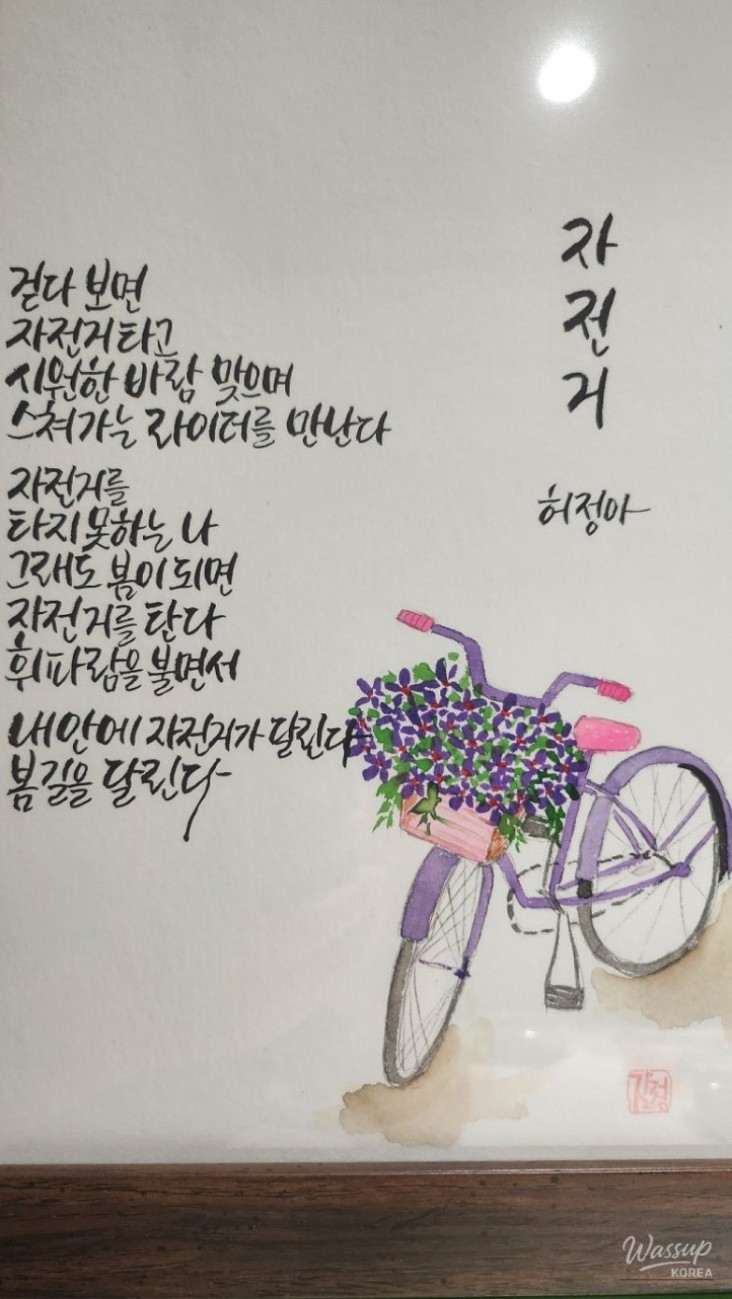 자전거
허정아
걷다 보면
자전거 타고
시원한 바람 맞으며
스쳐가는 라이더를 만난다
자전거를
타지 못하는 나
그래도 봄이 되면
자전거를 탄다
휘파람을 불면서
내 안에 자전거가 달린다
봄길을 달린다
Wassup
KOREA